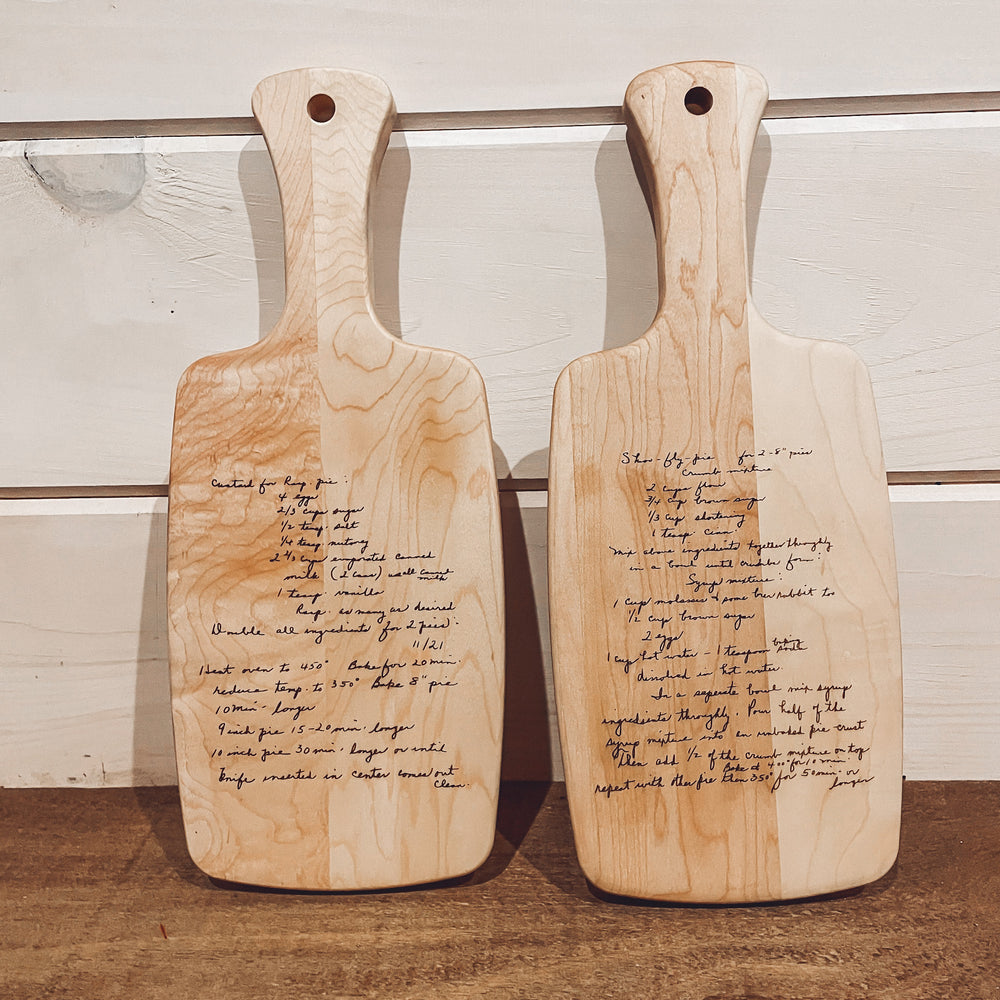 Custard for Rasp. pie:
4 eggs
2/3 cups sugar
1/2 teasp. salt
1/4 teasp. nutmeg
2 2/3 cups evaporated canned
milk (2 cans) small canned milk
1 teasp. vanilla
Rasp. as many as desired
Double all ingredients for 2 pies:
11/21
Heat oven to 450° Bake for 20 min.
reduce temp. to 350° Bake 8" pie
10 min. longer
9 inch pie 15-20 min. longer
10 inch pie 30 min. longer or until
Knife inserted in center comes out
Clean.
Shoo-fly-pie for 2-8" pies
Crumb mixture
2 cups flour
3/4 cup brown sugar
1/3 cup shortening
1 teasp cinn.
Mix above ingredients together throughly
in a bowl until crumbs form:
Syrup mixture:
1 cup molasses & some brer rabbit too
1/2 cup brown sugar
2 eggs
1 cup hot water - 1 teaspoon baking soda
disolved in hot water
In a seperate bowl mix syrup
ingredients throughly. Pour half of the
syrup mixture into an unbaked pie crust
Then add 1/2 of the crumb mixture on top
Bake at 400° for 10 min.
repeat with other pie then 350° for 50 min. or
longer